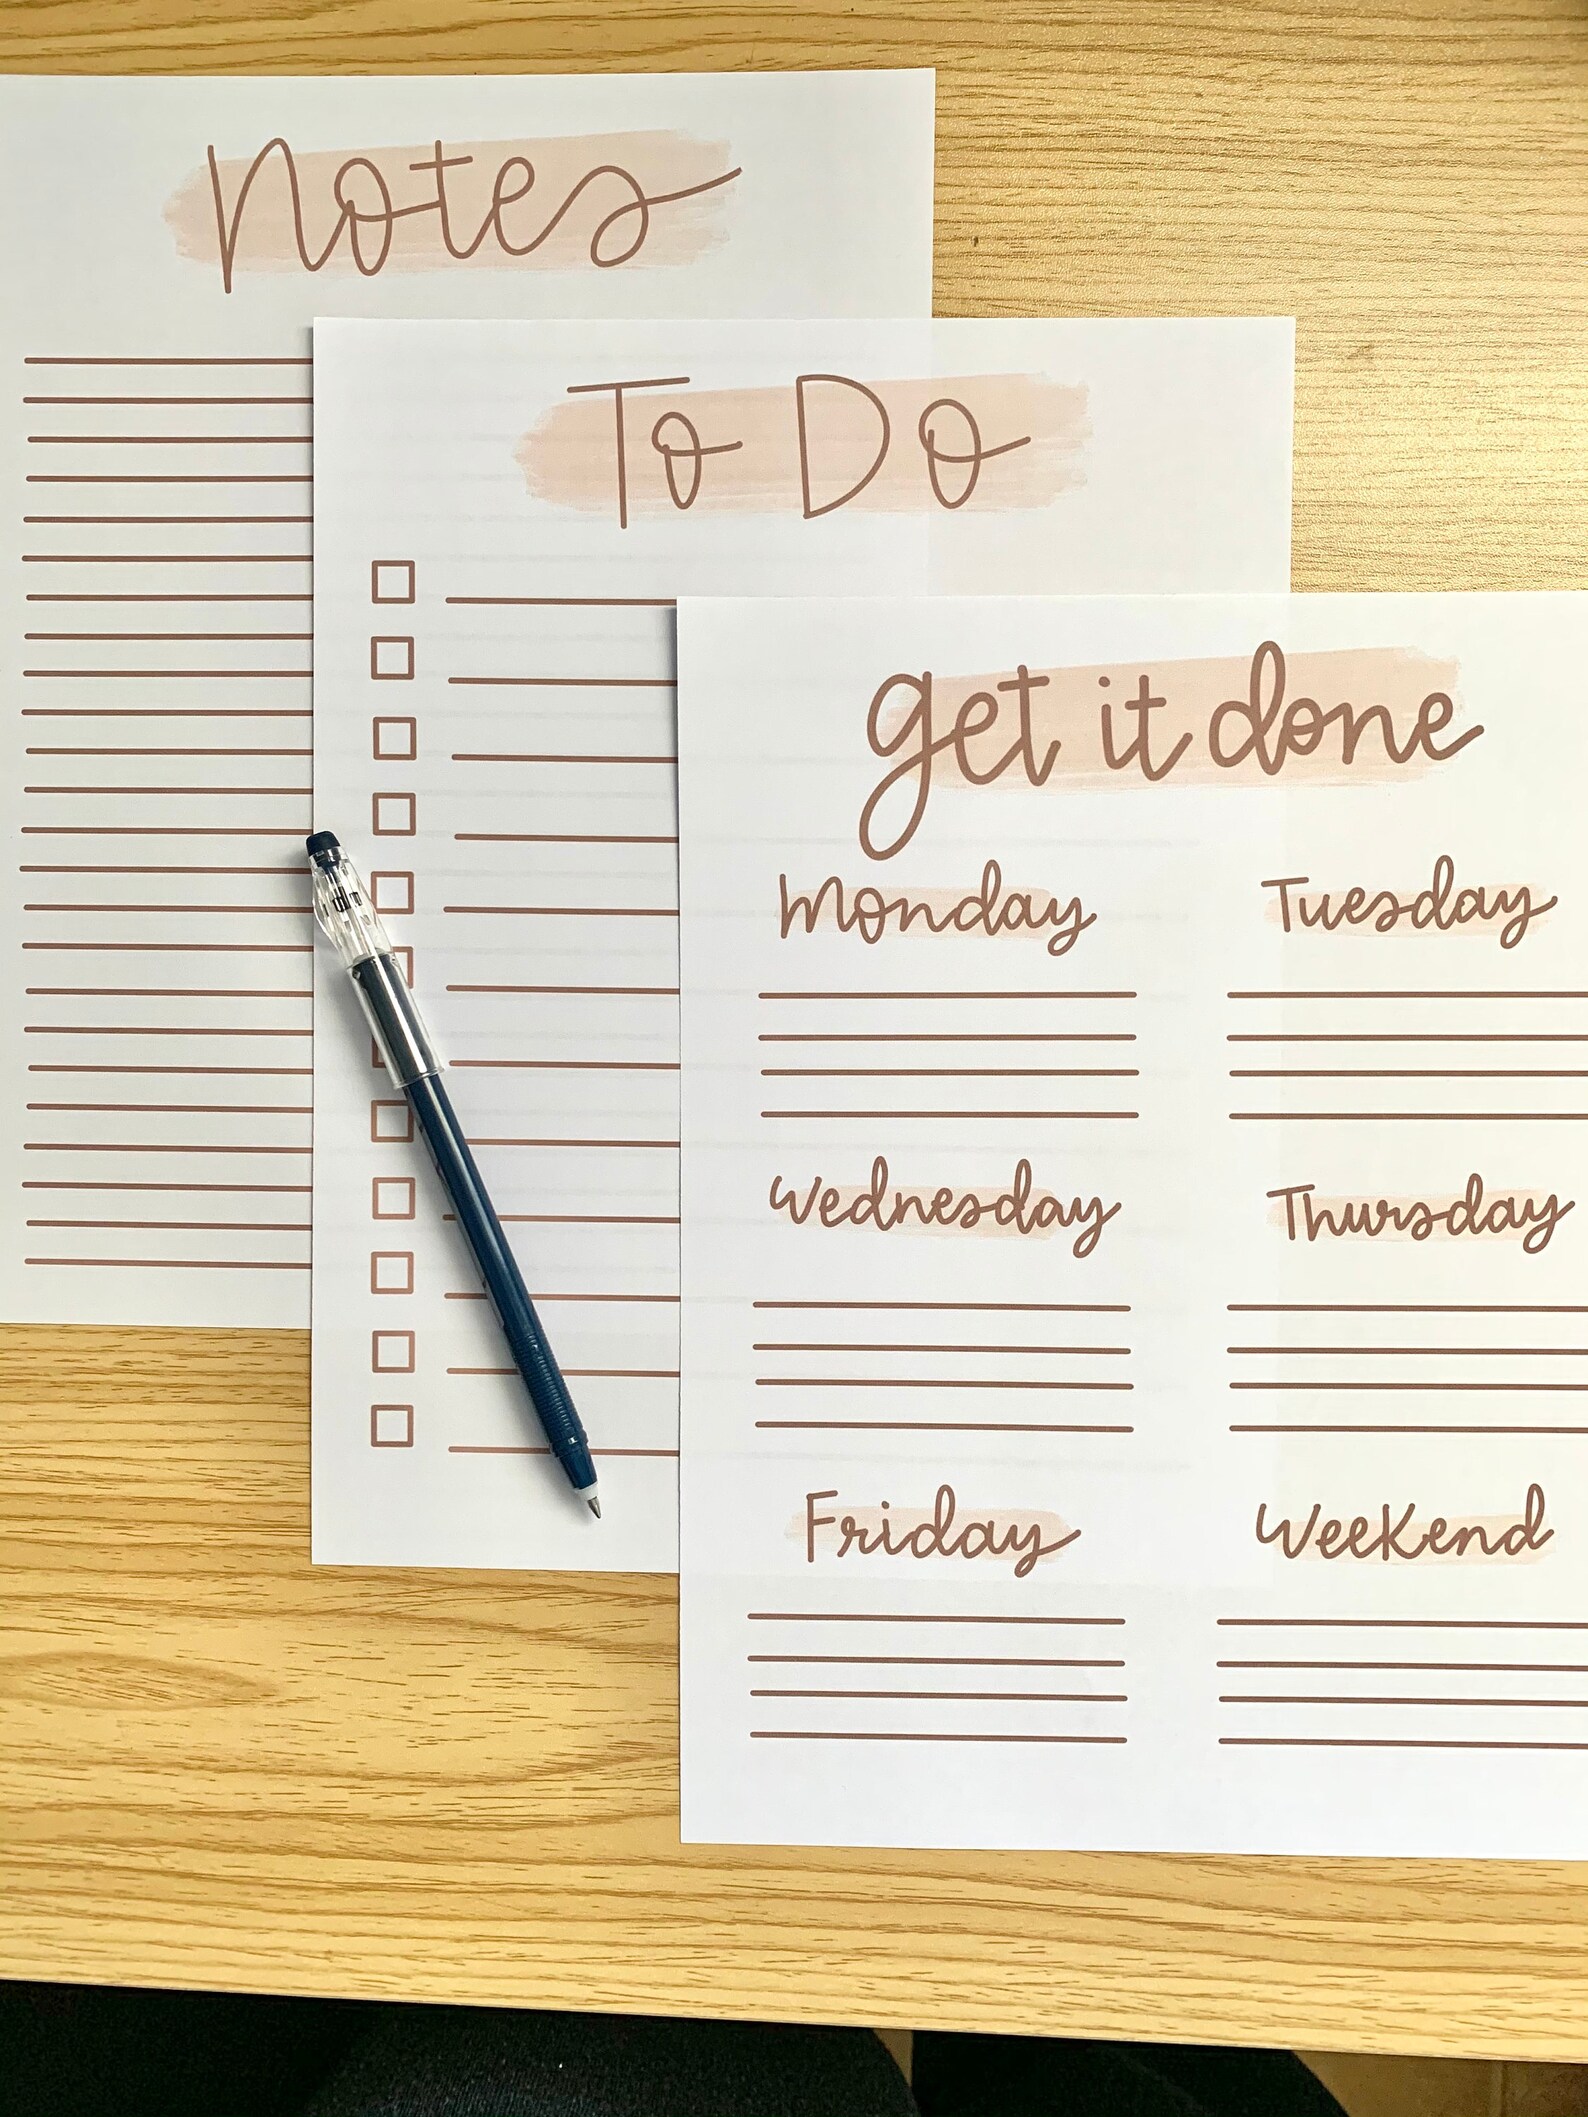 Notes
To Do
get it done
Monday
Tuesday
Wednesday
Thursday
Friday
Weekend